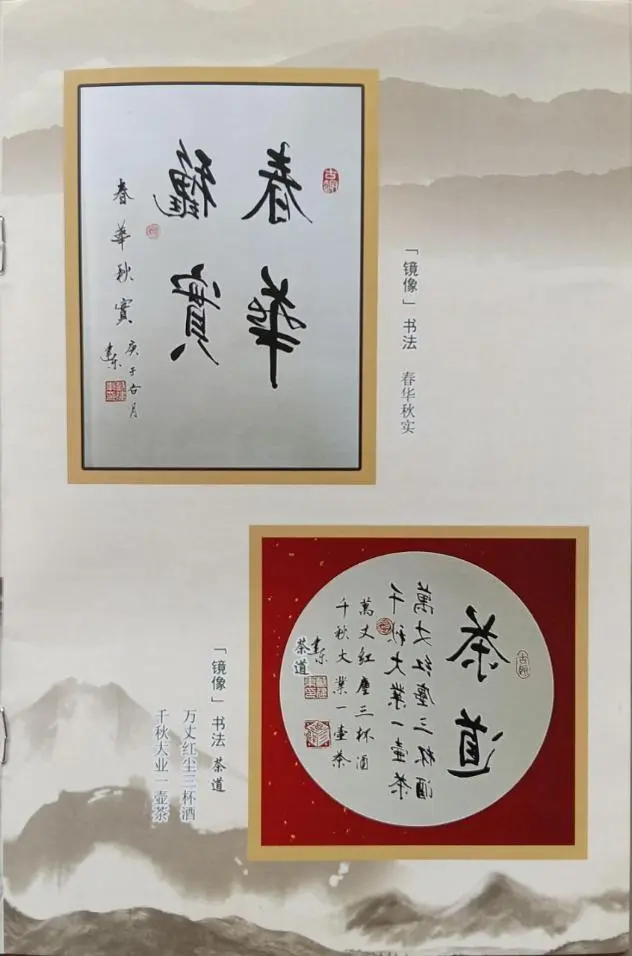 春華
實
春華秋實
庚子古月
「镜像」书法 春华秋实
茶道
萬丈红塵三杯酒
千秋大業一壶茶
萬丈红塵三杯酒
千秋大業一壶茶
茶道
「镜像」书法 茶道
万丈红尘三杯酒
千秋大业一壶茶